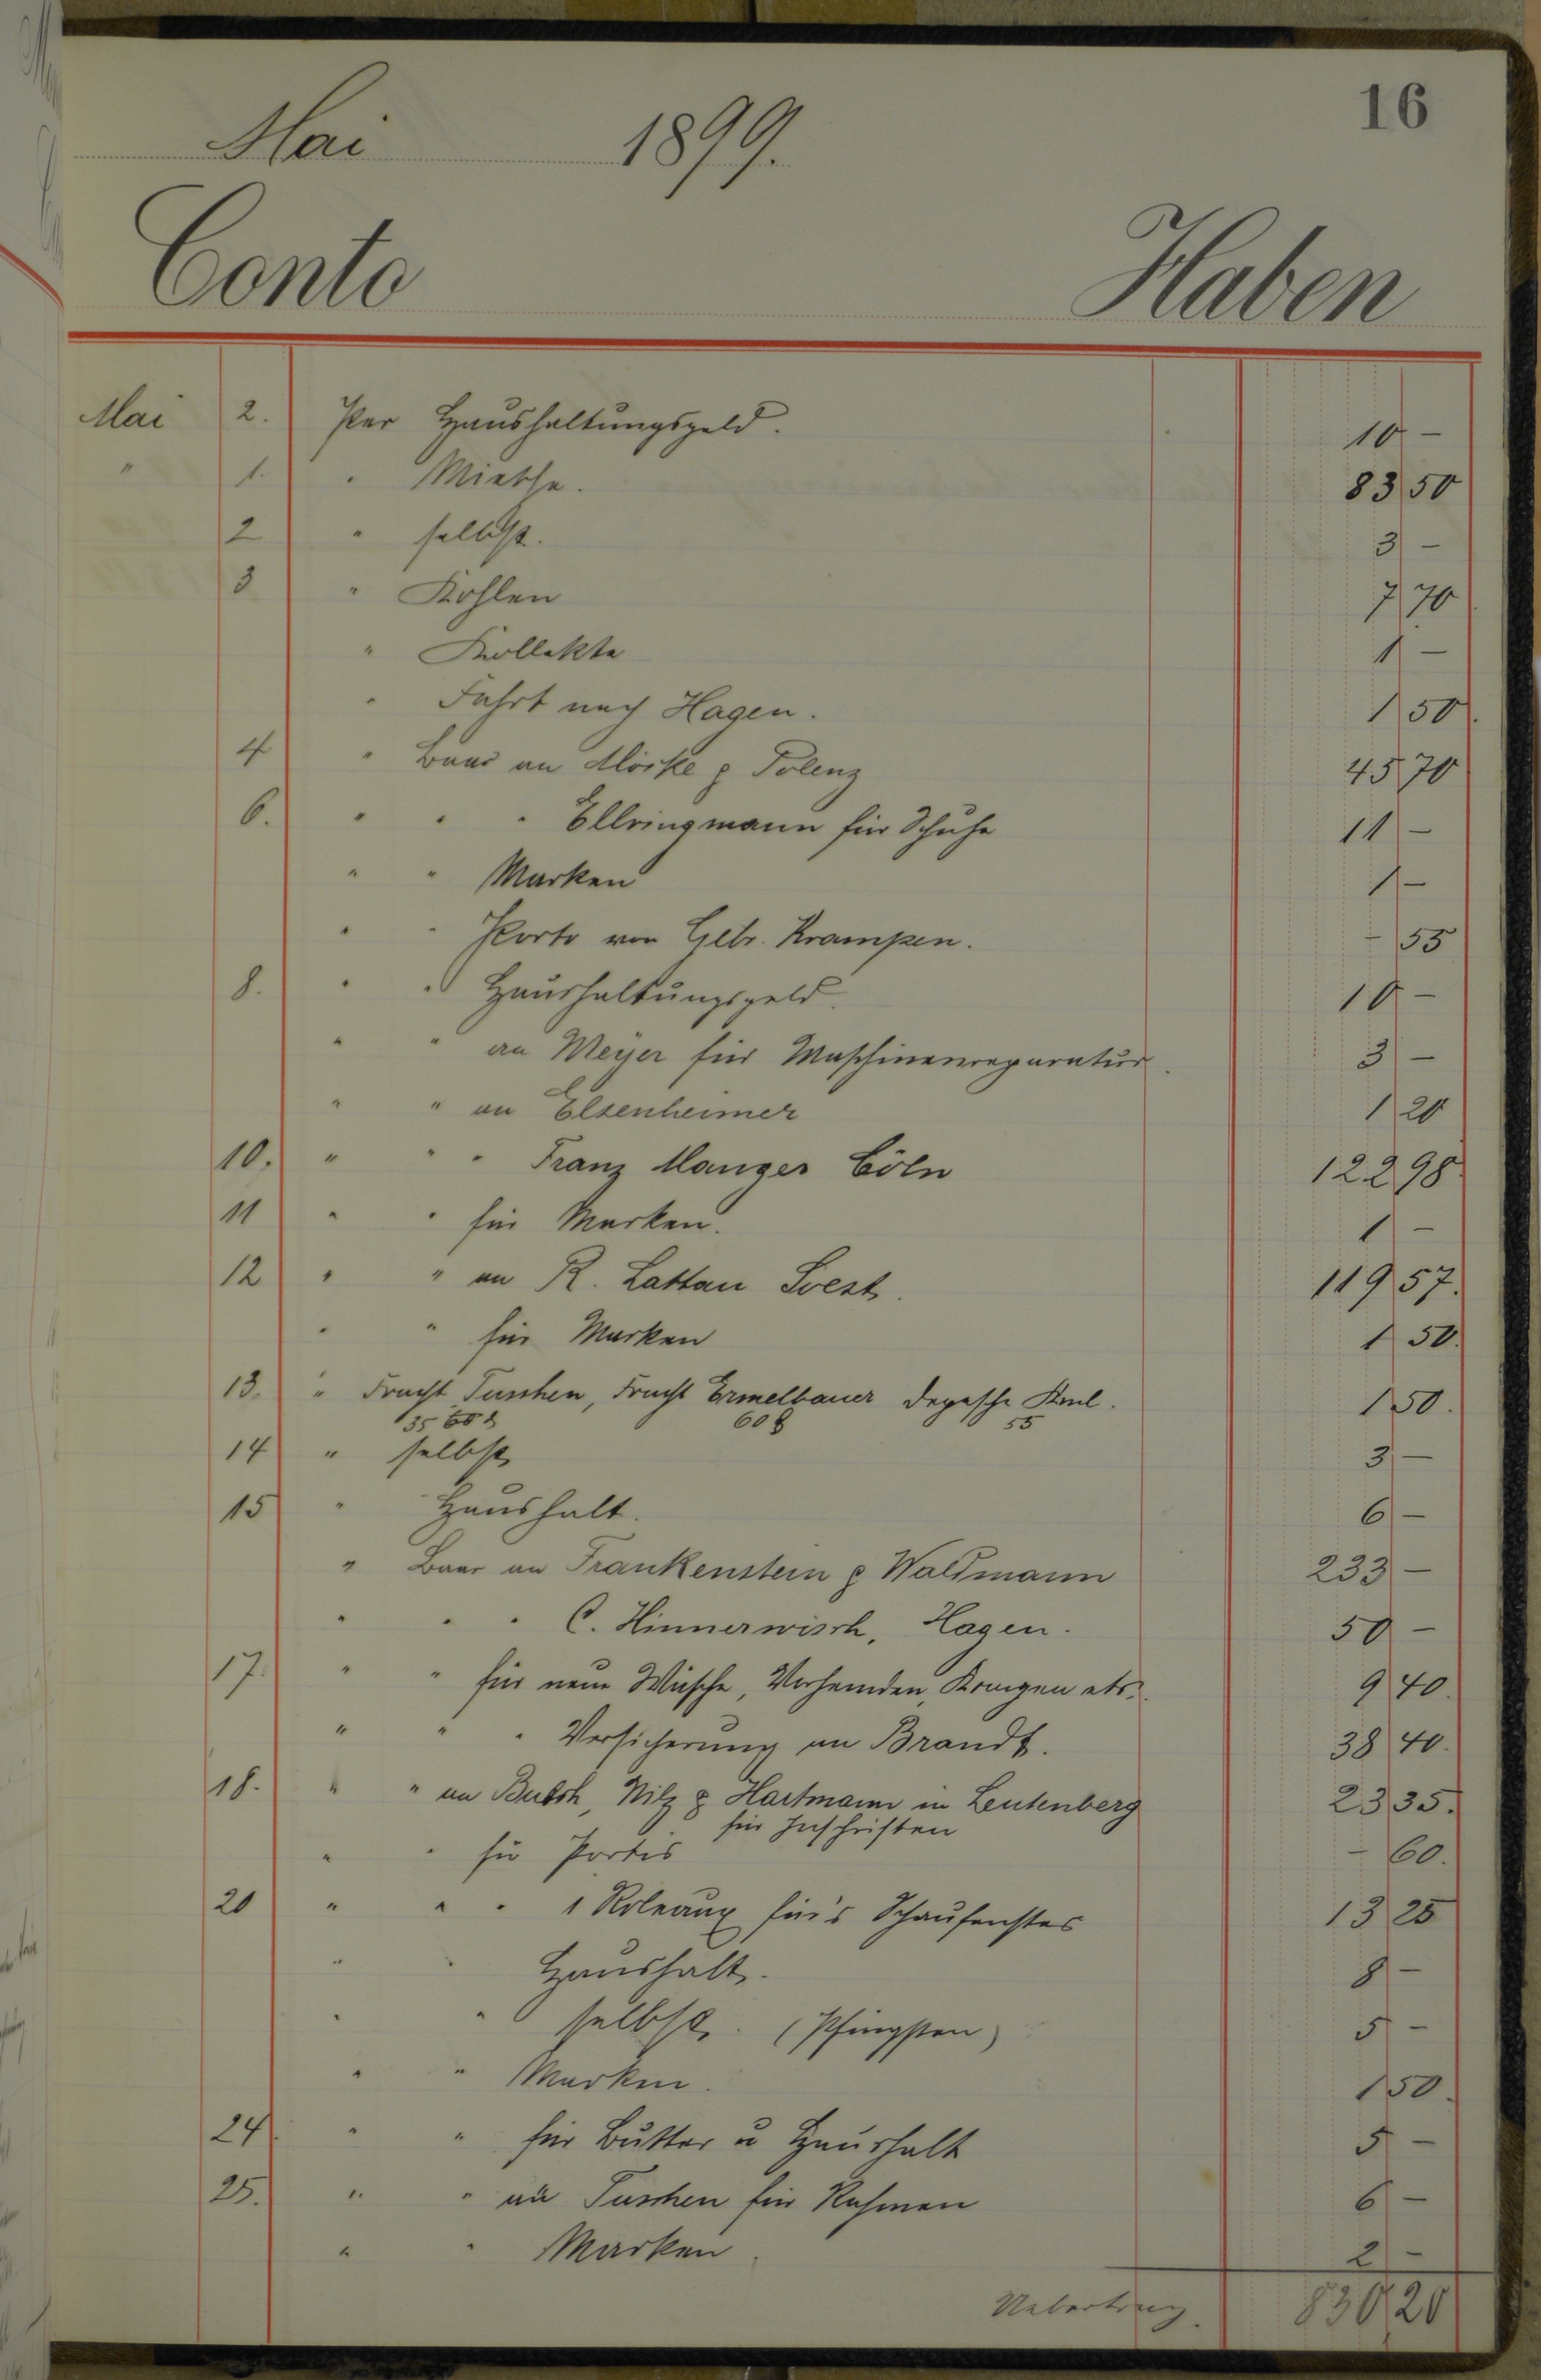 16
Mai 1899.
Conto Haben
Mai 2. Per Haushaltungsgeld. 10 –
" 1. " Miethe. 83 50
2 " selbst. 3 –
3 " Kohlen 7 70
" Kollekte 1 –
" Fahrt nach Hagen. 1 50.
4 " Baar an Mörke & Polenz 45 70
6. " " " Ellringmann für Schuhe 11 –
" " Marken 1 –
" " Porto von Gebr. Krampen. – 55
8. " " Haushaltungsgeld. 10 –
" " an Meyer für Maschinenreparatur. 3 –
" " an Elsenheimer 1 20
10. " " " Franz Manger Cöln 122 98
11 " " für Marken. 1 –
12 " " an R. Lattau Soest. 119 57.
" " für Marken 1 50.
13. " Fracht Tuschen, Fracht Ermelbauer Depesche Kml. 1 50.
35 60 55
14 " selbst 3 –
15 " Haushalt. 6 –
" Baar an Frankenstein & Waldmann 233 –
" " " C. Hinnerwisch, Hagen. 50 –
17. " " für neue Wäsche, Vorhemden, Kragen etc. 9 40.
" " " Versicherung an Brandt. 38 40.
18. " " an Busch, Nilz & Hartmann in Leutenberg 23 35.
für Inschriften
" " für Portis – 60.
20 " " " 1 Roleaux für's Schaufenster 13 25
" " Haushalt. 8 –
" " selbst. (Pfingsten) 5 –
" " Marken. 1 50.
24. " " für Butter u Haushalt 5 –
25. " " an Tuschen für Rahmen 6 –
" " Marken. 2 –
Uebertrag. 830 20